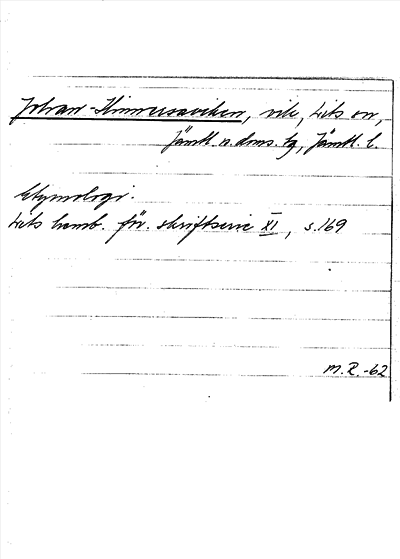 Johan-Himmersaviken, vik, Lits sn,
Jämtl. n. doms. tg, Jämtl. l.
Etymologi.
Lits hemb. för. skriftserie XI, s. 169
M.R. -62